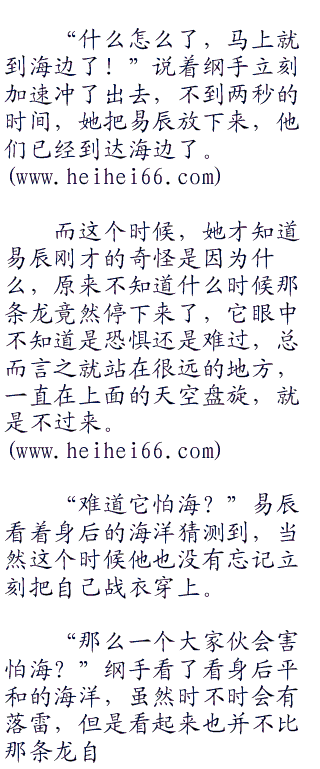 “什么怎么了，马上就
到海边了！”说着纲手立刻
加速冲了出去，不到两秒的
时间，她把易辰放下来，他
们已经到达海边了。
(www.heihei66.com)
而这个时候，她才知道
易辰刚才的奇怪是因为什
么，原来不知道什么时候那
条龙竟然停下来了，它眼中
不知道是恐惧还是难过，总
而言之就站在很远的地方，
一直在上面的天空盘旋，就
是不过来。
(www.heihei66.com)
“难道它怕海？”易辰
看着身后的海洋猜测到，当
然这个时候他也没有忘记立
刻把自己战衣穿上。
“那么一个大家伙会害
怕海？”纲手看了看身后平
和的海洋，虽然时不时会有
落雷，但是看起来也并不比
那条龙自